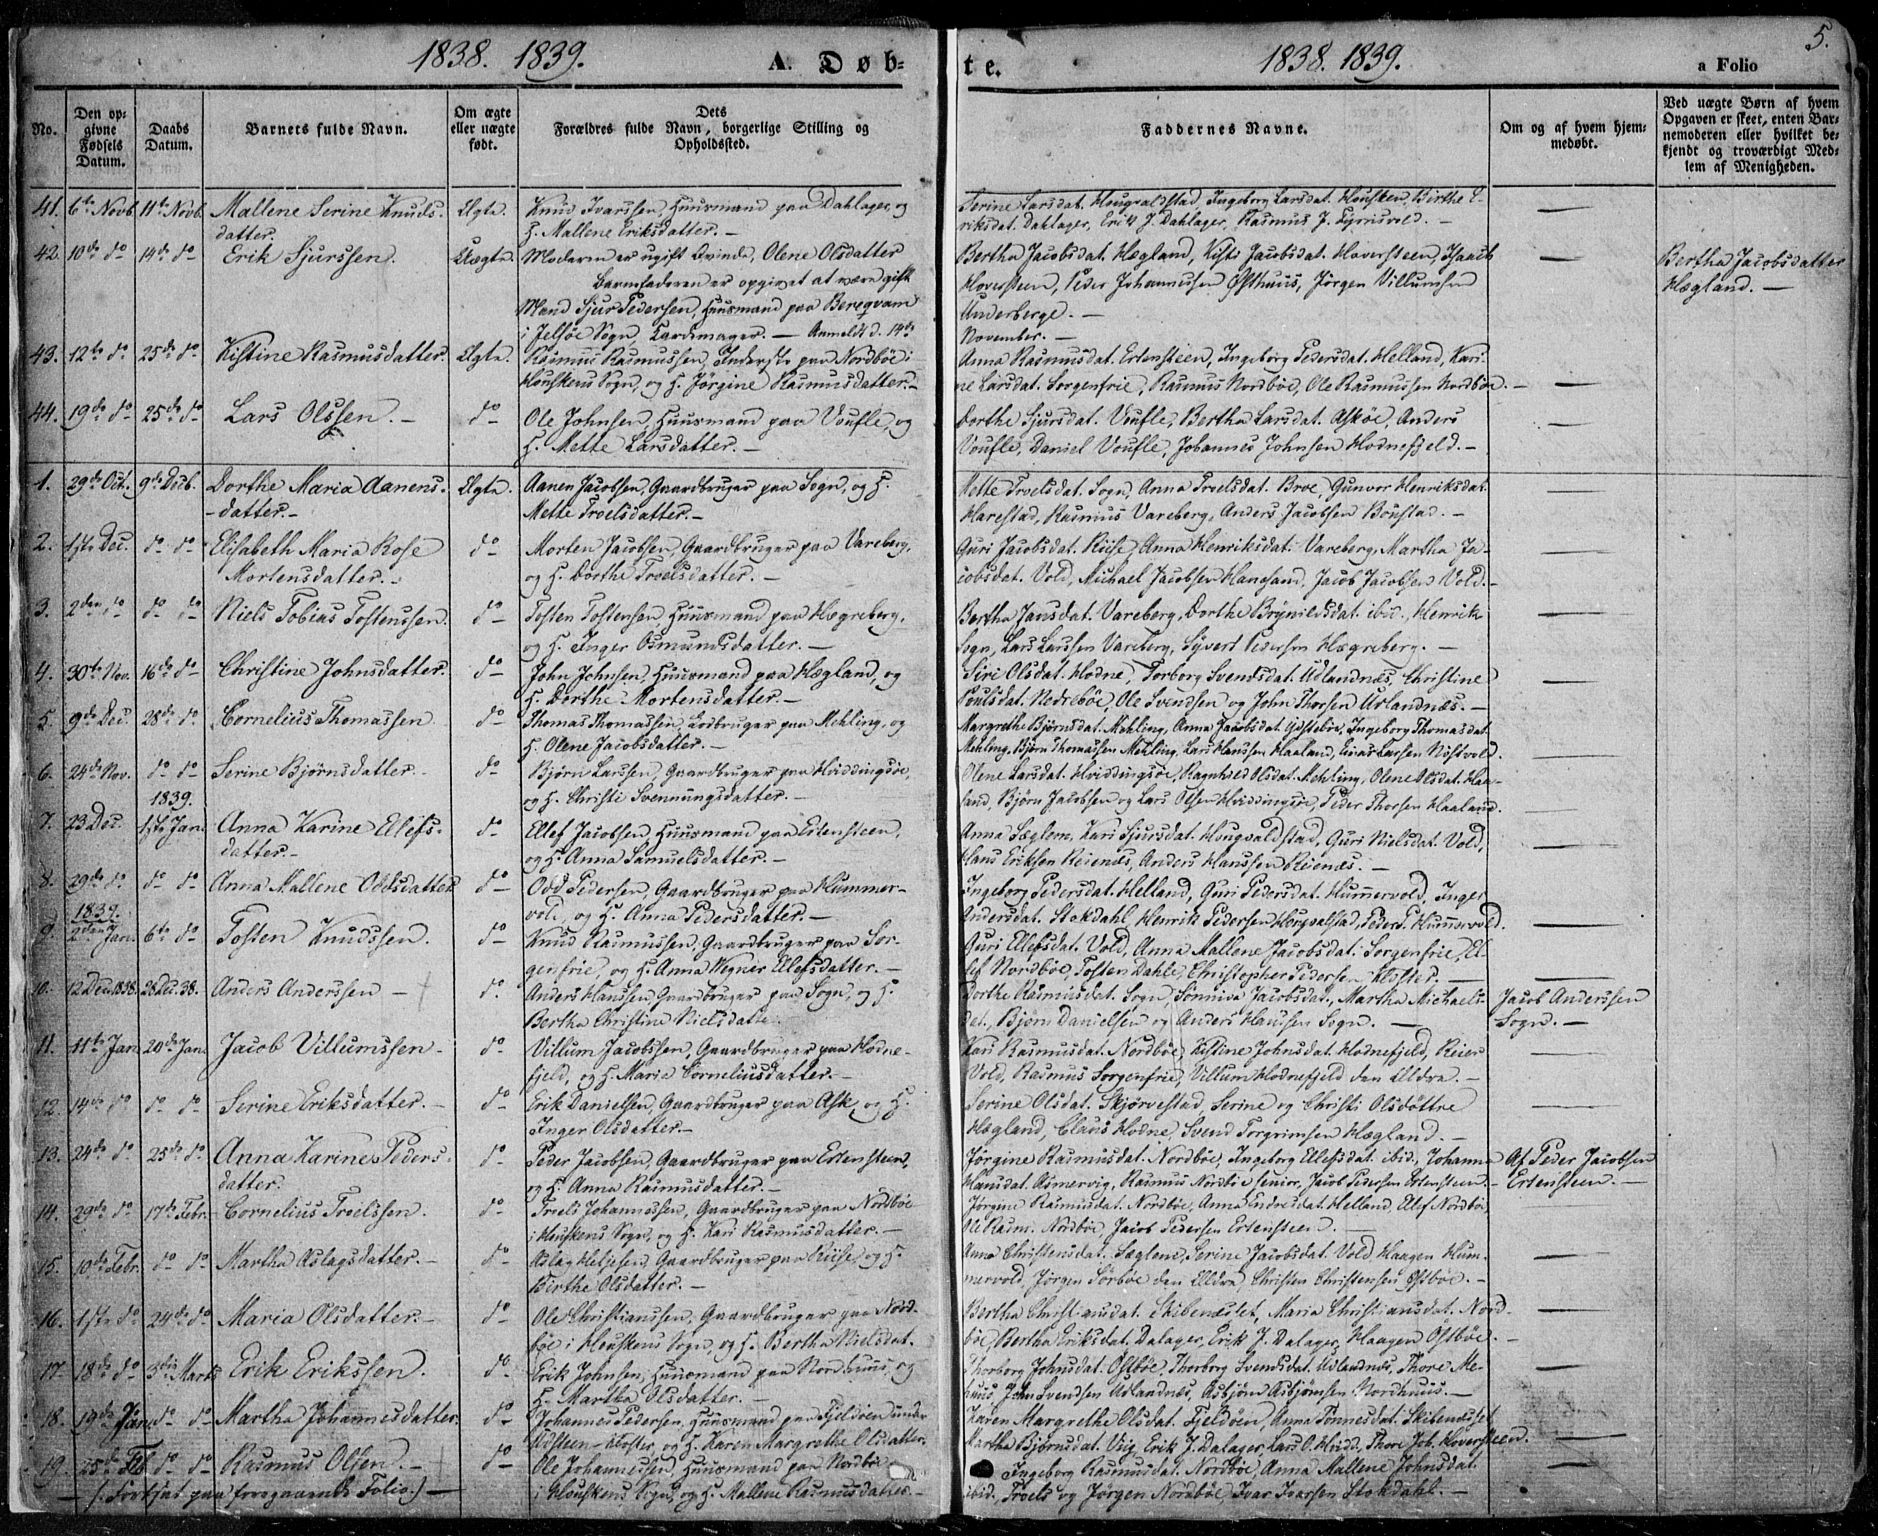 1838. 1839.
A. Døb-
te.
1838. 1839.
a Folio
5.
No.
Den op-
givne
Fødsels
Datum.
Daabs
Datum.
Barnets fulde Navn.
Om ægte
eller uægte
født.
Dets
Forældres fulde Navn, borgerlige Stilling og
Opholdssted.
Faddernes Navne.
Om og af hvem hjem-
medøbt.
Ved uægte Børn af hvem
Opgaven er skeet, enten Bar-
nemoderen eller hvilket be-
kjendt og troværdigt Med-
lem af Menigheden.
41. 6te Novb. 11te Novb. Mallene Serine Knuds-
datter.
Ægte. Knud Ivarssen, Huusmand paa Dahlager, og
H. Mallene Eriksdatter. —
Serine Larsdat. Hougvaldstad, Ingeborg Larsdat. Housken, Birthe E-
riksdat. Dahlager, Erik J. Dahlager, Rasmus J.
42. 10de do 14de do Erik Sjurssen. Uægte. Moderen er ugift Qvinde, Olene Olsdatter
Barnefaderen er opgivet at være gift
Mand Sjur Pedersen, Huusmand paa Bergqvam
i Jelsøe Sogn, Anmeldt d. 14de
November. —
Bertha Jacobsdat. Hægland, Kisti Jacobsdat. Hoversteen, Isaach
Hoversteen, Peder Johannesen Østhuus, Jørgen Villumsen
Underberge. —
Bertha Jacobsdatter
Hægland. —
43. 12te do 25de do Kistine Rasmusdatter. Ægte. Rasmus Rasmussen, Inderste paa Nordbøe i
Houskens Sogn, og H. Jørgine Rasmusdatter. —
Anna Rasmusdat. Ertensteen, Ingeborg Pedersdat. Helland, Kari-
ne Larsdat. Sorgenfrie, Rasmus Nordbøe, Ole Rasmussen Nordbøe. —
44. 19de do 25de do Lars Olssen. — do Ole Johnsen, Huusmand paa Voufle, og
H. Mette Larsdatter. —
Dorthe Sjursdat. Voufle, Bertha Larsdat. Askøe, Anders
Voufle, Daniel Voufle, Johannes Johnsen Hodnefjeld. —
1. 29de Oct. 9de Decb. Dorthe Maria Aanens-
datter. —
Ægte. Aanen Jacobsen, Gaardbruger paa Sogn, og H.
Mette Troelsdatter. —
Mette Troelsdat. Sogn, Anna Troelsdat. Broe, Gunvor Henriksdat.
Harestad, Rasmus Vareberg, Anders Jacobsen Boustad. —
2. 1ste Dec. do do Elisabeth Maria Rose
Mortensdatter. —
do Morten Jacobsen, Gaardbruger paa Vareberg,
og H. Dorthe Troelsdatter. —
Guri Jacobsdat. Riise, Anna Henriksdat. Vareberg, Martha Ja-
cobsdat. Vold, Michael Jacobsen Hanasand, Jacob Jacobsen Vold. —
3. 2den do do do Niels Tobias Tostenssen. do Tosten Tostensen, Huusmand paa Hægreberg,
og H. Inger Osmundsdatter. —
Bertha Jansdat. Vareberg, Dorthe Brynildsdat. ibid., Henrik
Sogn, Lars Larssen Vareberg, Syvert Pedersen Hægreberg. —
4. 30te Nov. 16de do Christine Johnsdatter. do John Johnsen, Huusmand paa Hægland, og
H. Dorthe Mortensdatter. —
Siri Olsdat. Hodne, Torborg Svendsdat. Udlandnæs, Christine
Poulsdat. Nedrebøe, Ole Svendsen og John Thorsen Udlandnæs. —
5. 9de Dec. 28de do Cornelius Thomassen do Thomas Thomassen, Losbruger paa Mehling, og
H. Olene Jacobsdatter. —
Margrethe Bjørnsdat. Mehling, Anna Jacobsdat. Ingeborg Thomasdat.
Mehling, Bjørn Thomassen Mehling, Lars Hanssen Haaland, Einar Larsen
6. 24de Nov. do do Serine Bjørnsdatter. do Bjørn Larssen, Gaardbruger paa Hviddingsøe,
og H. Christi Svennungsdatter. —
Olene Larsdat. Hviddingsøe, Ragnhild Olsdat. Mehling, Olene Olsdat. Haa-
land, Bjørn Jacobsen og Lars Olsen Hviddingsøe, Peder Thorsen Haaland.
1839.
7. 23 Dec. 1ste Jan. Anna Karine Elefs-
datter. —
do Ellef Jacobsen, Huusmand paa Ertensteen,
og H. Anna Samuelsdatter. —
Anna Sæglem, Kari Sjursdat. Hougvaldstad, Guri Nielsdat. Vold,
Hans Eriksen Reienæs, Anders Hanssen Reienæs. —
8. 29de do do do Anna Mallene Oddsdatter do Odd Pedersen, Gaardbruger paa Hummer-
vold, og H. Anna Pedersdatter. —
Ingeborg Pedersdat. Helland, Guri Pedersdat. Hummervold, Inger
Andersdat. Stokdahl, Henrik Pedersen Hougvalstad, Peder P. Hummervold.
1839.
9. 2den Jan. 6te do Tosten Knudssen. do Knud Rasmussen, Gaardbruger paa Sor-
genfrie, og H. Anna Vegner Ellefsdatter. —
Guri Ellefsdat. Vold, Anna Mallene Jacobsdat. Sorgenfrie, El-
lef Nordbøe, Tosten Dahle, Christopher Pedersen Kloster. —
10. 12 Dec. 1838. 28 Dec. 38. Anders Anderssen — do Anders Hanssen, Gaardbruger paa Sogn, og H.
Bertha Christine Nielsdatter.
Dorthe Rasmusdat. Sogn, Sønniva Jacobsdat., Martha Michaels-
dat., Bjørn Danielsen og Anders Hanssen Sogn. —
Jacob Anderssen
Sogn. —
11. 11te Jan. 20de Jan. Jacob Villumssen — do Villum Jacobssen, Gaardbruger paa Hodne-
fjeld, og H. Maria Corneliusdatter. —
Kari Rasmusdat. Nordbøe, Kistine Johnsdat. Hodnefjeld, Reier
Vold, Rasmus Sorgenfrie, Villum Hodnefjeld den Ældre. —
12. 14de do do do Serine Eriksdatter. — do Erik Danielsen, Gaardbruger paa Ask, og H.
Inger Olsdatter. —
Serine Olsdat. Skjørvestad, Serine og Christi Olsdøttre
Hægland, Claus Hodne, Svend Torgrimsen Hægland. —
13. 24de do 25de do Anna Karine Peders-
datter.
do Peder Jacobsen, Gaardbruger paa Ertensteen,
og H. Anna Rasmusdatter. —
Jørgine Rasmusdat. Nordbøe, Ingeborg Ellefsdat. ibid., Johanna
Hansdat. Asmervig, Rasmus Nordbøe senior, Jacob Pedersen Ertensteen. —
Af Peder Jacobsen
Ertensteen. —
14. 29de do 17de Febr. Cornelius Troelssen. do Troels Johannessen, Gaardbruger paa Nordbøe
i Houskens Sogn, og H. Kari Rasmusdatter. —
Jørgine Rasmusdat. Nordbøe, Anna Endresdat. Helland, Elef Nordbøe,
Rasm. Nordbøe, Jacob Pedersen Ertensteen. —
15. 10de Febr. do do Martha Aslagsdatter. — do Aslag Helgesen, Gaardbruger paa Riise, og H.
Birthe Olsdatter. —
Anna Christensdat. Sæglem, Serine Jacobsdat. Vold, Haagen Hum-
mervold, Jørgen Sørbøe den Ældre, Christen Christensen Østbøe. —
16. 1ste do 24de do Maria Olsdatter. — do Ole Christianssen, Gaardbruger paa Nord-
bøe i Houskens Sogn, og H. Bertha Nielsdat.
Bertha Christiansdat. Skibenæslet, Maria Christiansdat. Nord-
bøe, Bertha Eriksdat. Dalager, Erik J. Dalager, Haagen Østbøe. —
17. 18de do 3die Marts Erik Erikssen. do Erik Johnsen, Huusmand paa Nordhuus, og
H. Martha Olsdatter. —
Thorborg Johnsdat. Østbøe, Thorborg Svendsdat. Udlandnæs, Thore Me-
huus, John Svendsen Udlandnæs, Asbjørn Asbjørnsen Nordhuus. —
18. 19de Jan. do do Martha Johannesdatter. do Johannes Pedersen, Huusmand paa Fjeldøen under
Udsteen-Kloster, og H. Karen Margrethe Olsdatter.
Karen Margrethe Olsdat. Fjeldøen, Anna Tønnesdat. Skibenæsset,
Martha Bjørnsdat. Viig, Erik J. Dalager, Lars O. Hvid., Thore Joh. Hoversteen.
19. 25de Feb. do do Rasmus Olsen. — do Ole Johannessen, Huusmand paa Nordbøe
i Houskens Sogn, og H. Mallene Rasmusdatter. —
Ingeborg Rasmusdat. Nordbøe, Anna Mallene Johnsdat.
ibid., Troels og Jørgen Nordbøe, Ivar Ivarsen Stokdahl. —
— (: Fortsat paa foregaaende Folio :) —